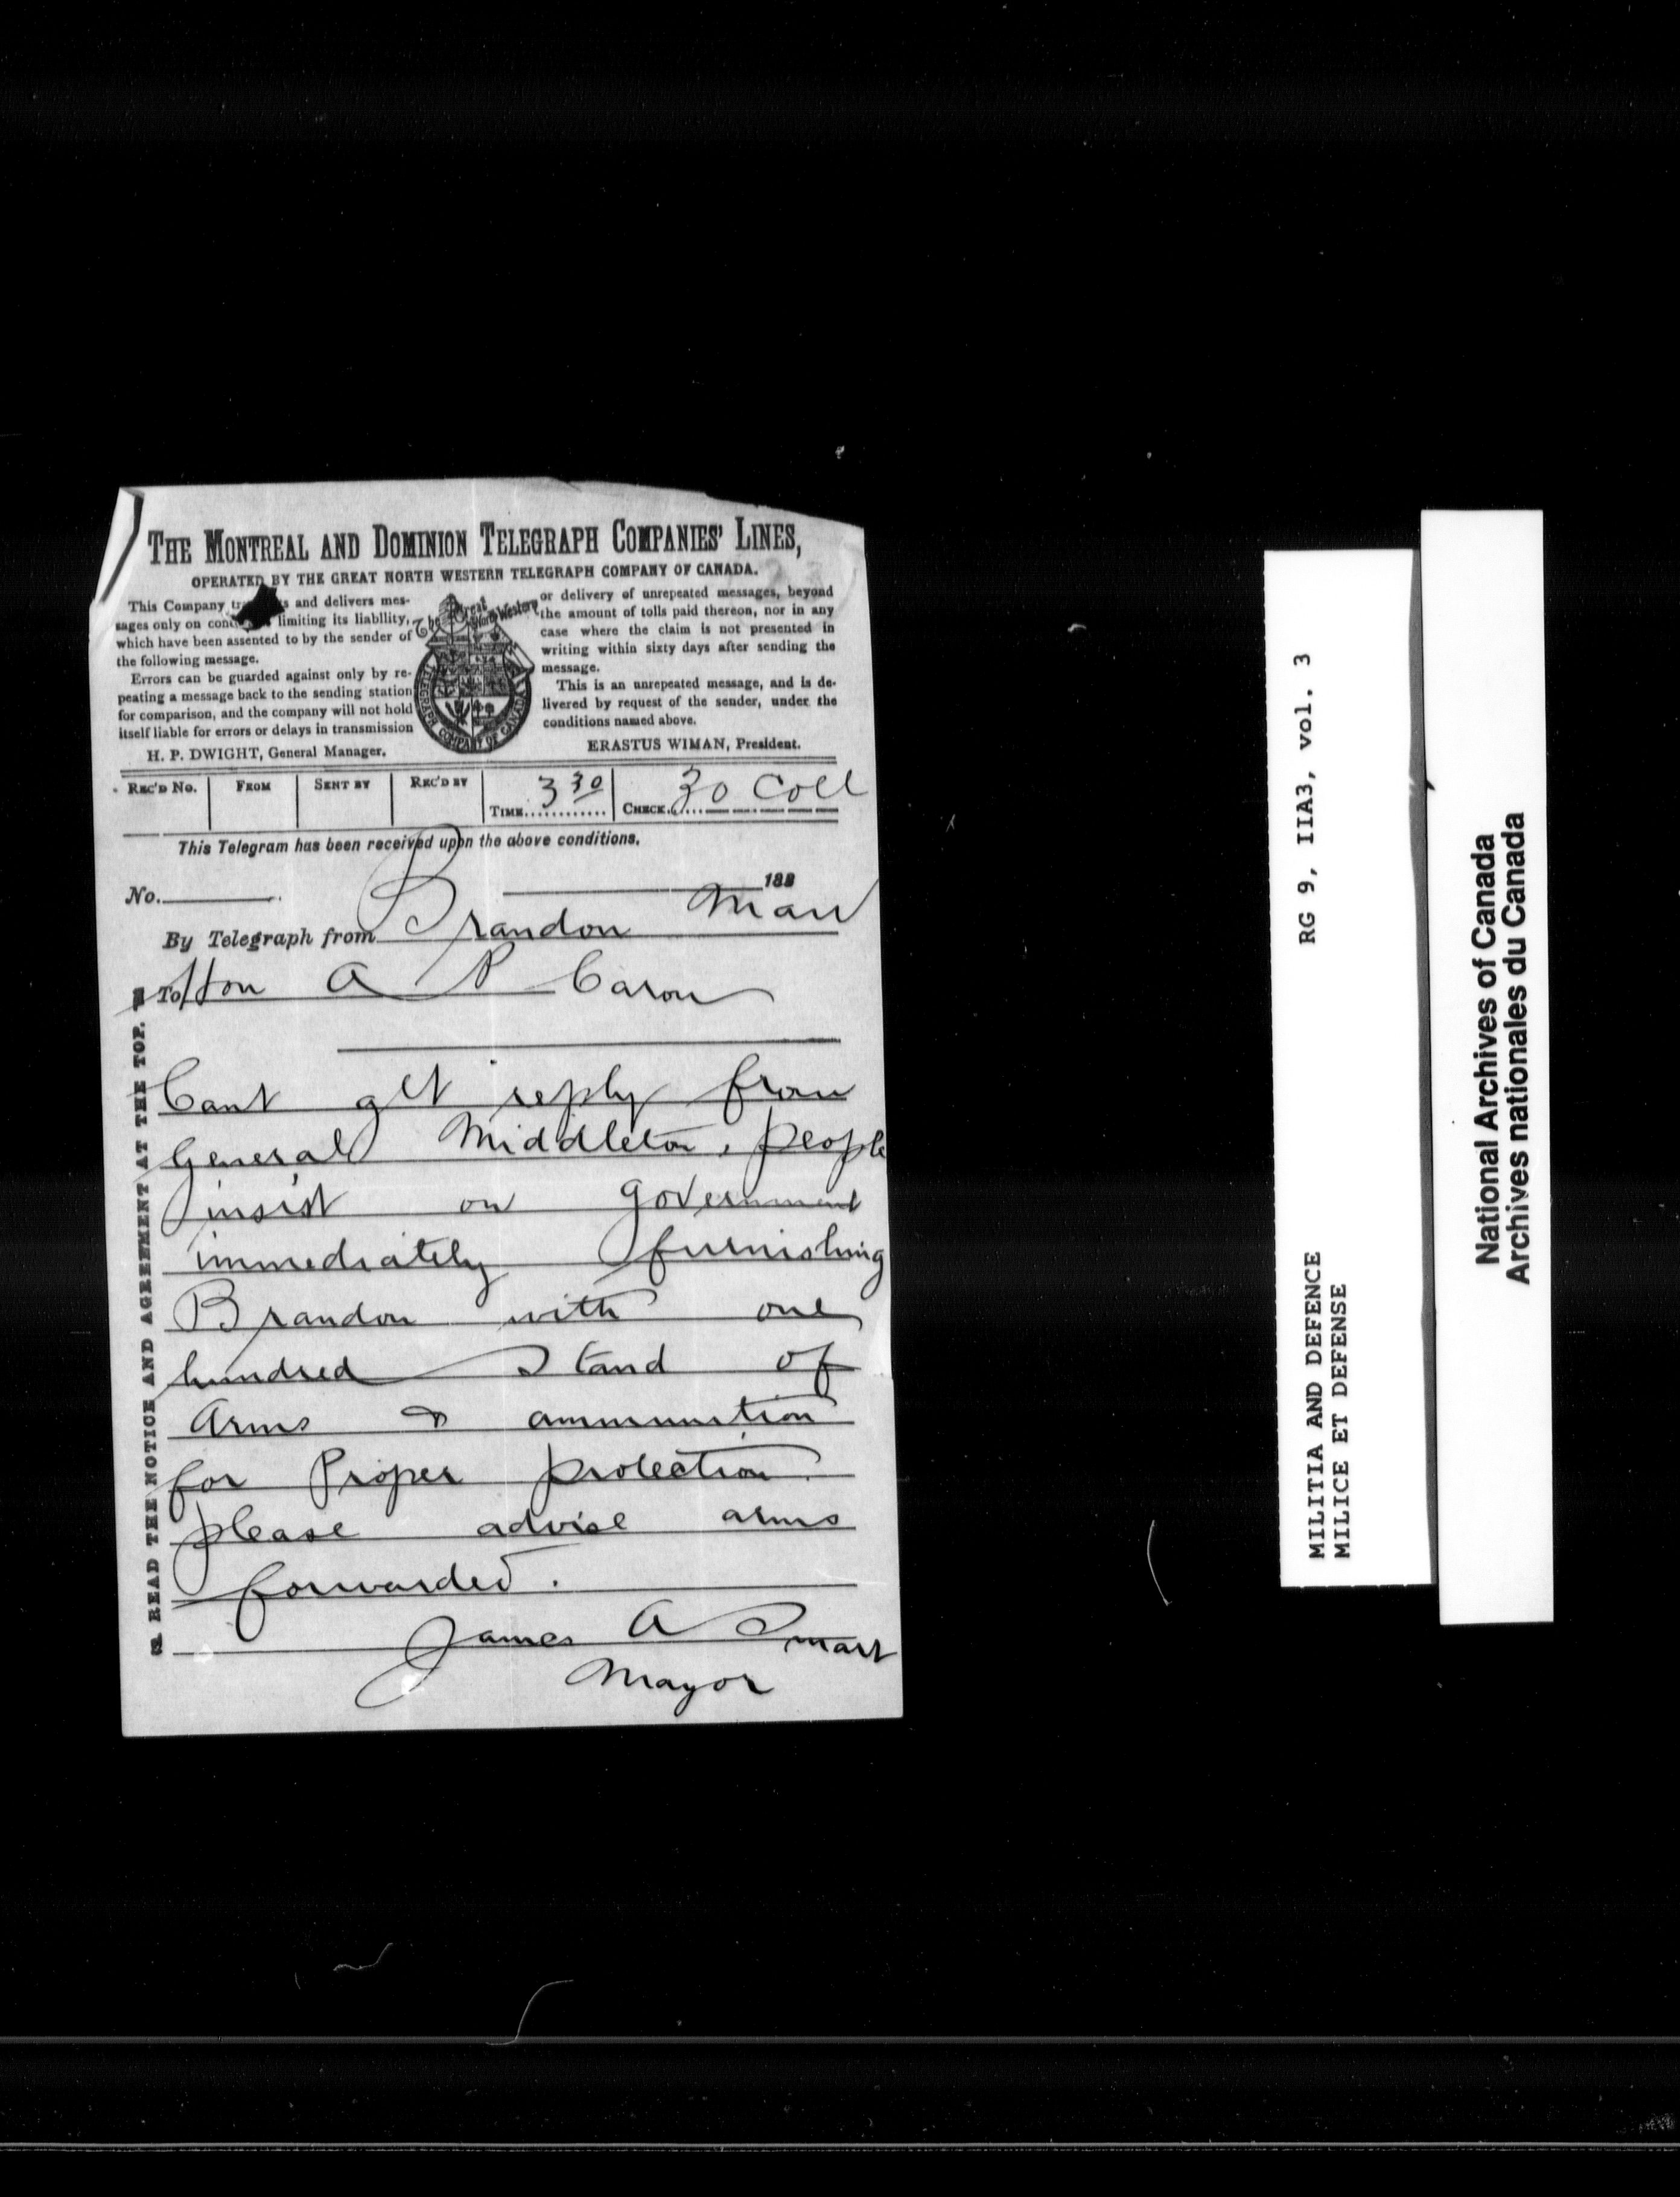 THE MONTREAL AND DOMINION TELEGRAPH COMPANIES' LINES,
OPERATED BY THE GREAT NORTH WESTERN TELEGRAPH COMPANY OF CANADA.
This Company s and delivers mes-
sages only on limiting its liability,
which have been assented to by the sender of
the following message.
Errors can be guarded against only by re-
peating a message back to the sending station
for comparison, and the company will not hold
itself liable for errors or delays in transmission
H. P. DWIGHT, General Manager.
The Great North Western
TELEGRAPH COMPANY OF CANADA
or delivery of unrepeated messages, beyond
the amount of tolls paid thereon, nor in any
case where the claim is not presented in
writing within sixty days after sending the
message.
This is an unrepeated message, and is de-
livered by request of the sender, under the
conditions named above.
ERASTUS WIMAN, President.
REC'D No. FROM SENT BY REC'D BY TIME 3 30 CHECK 30 Coll
This Telegram has been received upon the above conditions.
No. 188
By Telegraph from Brandon Man
To Hon A P Caron
Cant get reply from
General Middleton, people
insist on government
immediately furnishing
Brandon with one
hundred Stand of
Arms & ammunition
for Proper protection.
please advise arms
forwarded.
James A Smart
Mayor
READ THE NOTICE AND AGREEMENT AT THE TOP.
RG 9, IIA3, vol. 3
MILITIA AND DEFENCE
MILICE ET DEFENSE
National Archives of Canada
Archives nationales du Canada